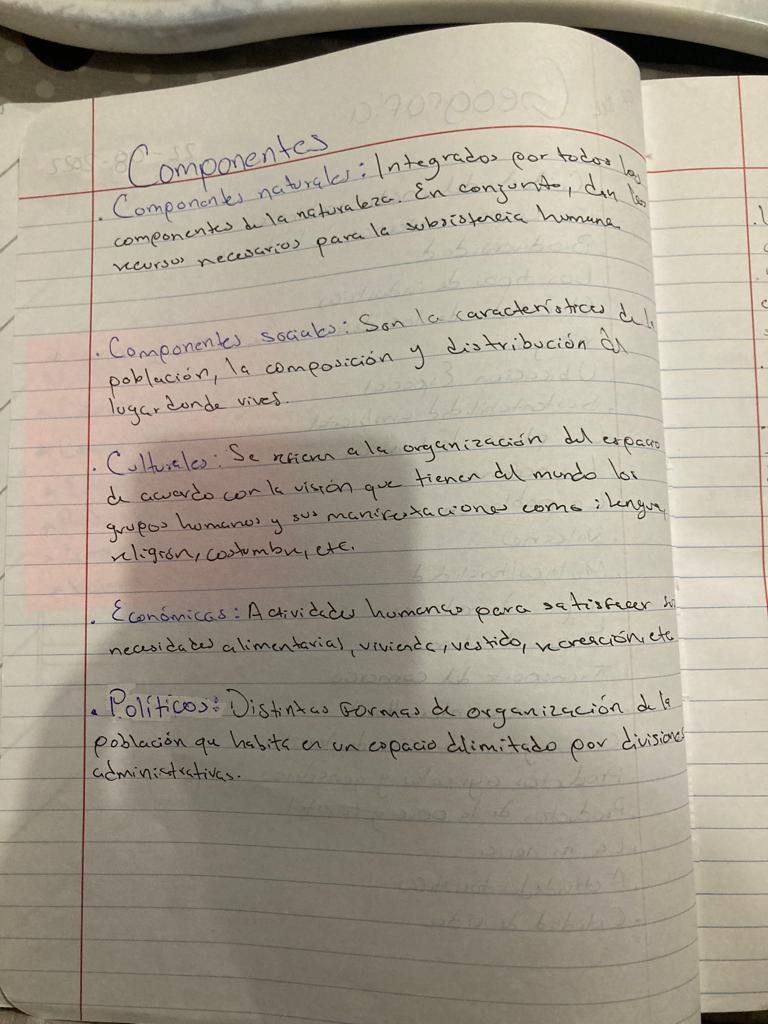 Componentes
. Componentes naturales: Integrados por todos los
componentes de la naturaleza. En conjunto, dan los
recursos necesarios para la subsistencia humana
. Componentes sociales: Son la características de la
población, la composición y distribución del
lugar donde vives.
. Culturales: Se refieren a la organización del espacio
de acuerdo con la visión que tienen del mundo los
grupos humanos y sus manifestaciones como: lengua,
religión, costumbre, etc.
. Económicas: Actividades humanas para satisfacer su
necesidades alimentarias, vivienda, vestido, recreación, etc
. Políticos: Distintas formas de organización de la
población que habita en un espacio delimitado por divisiones
administrativas.